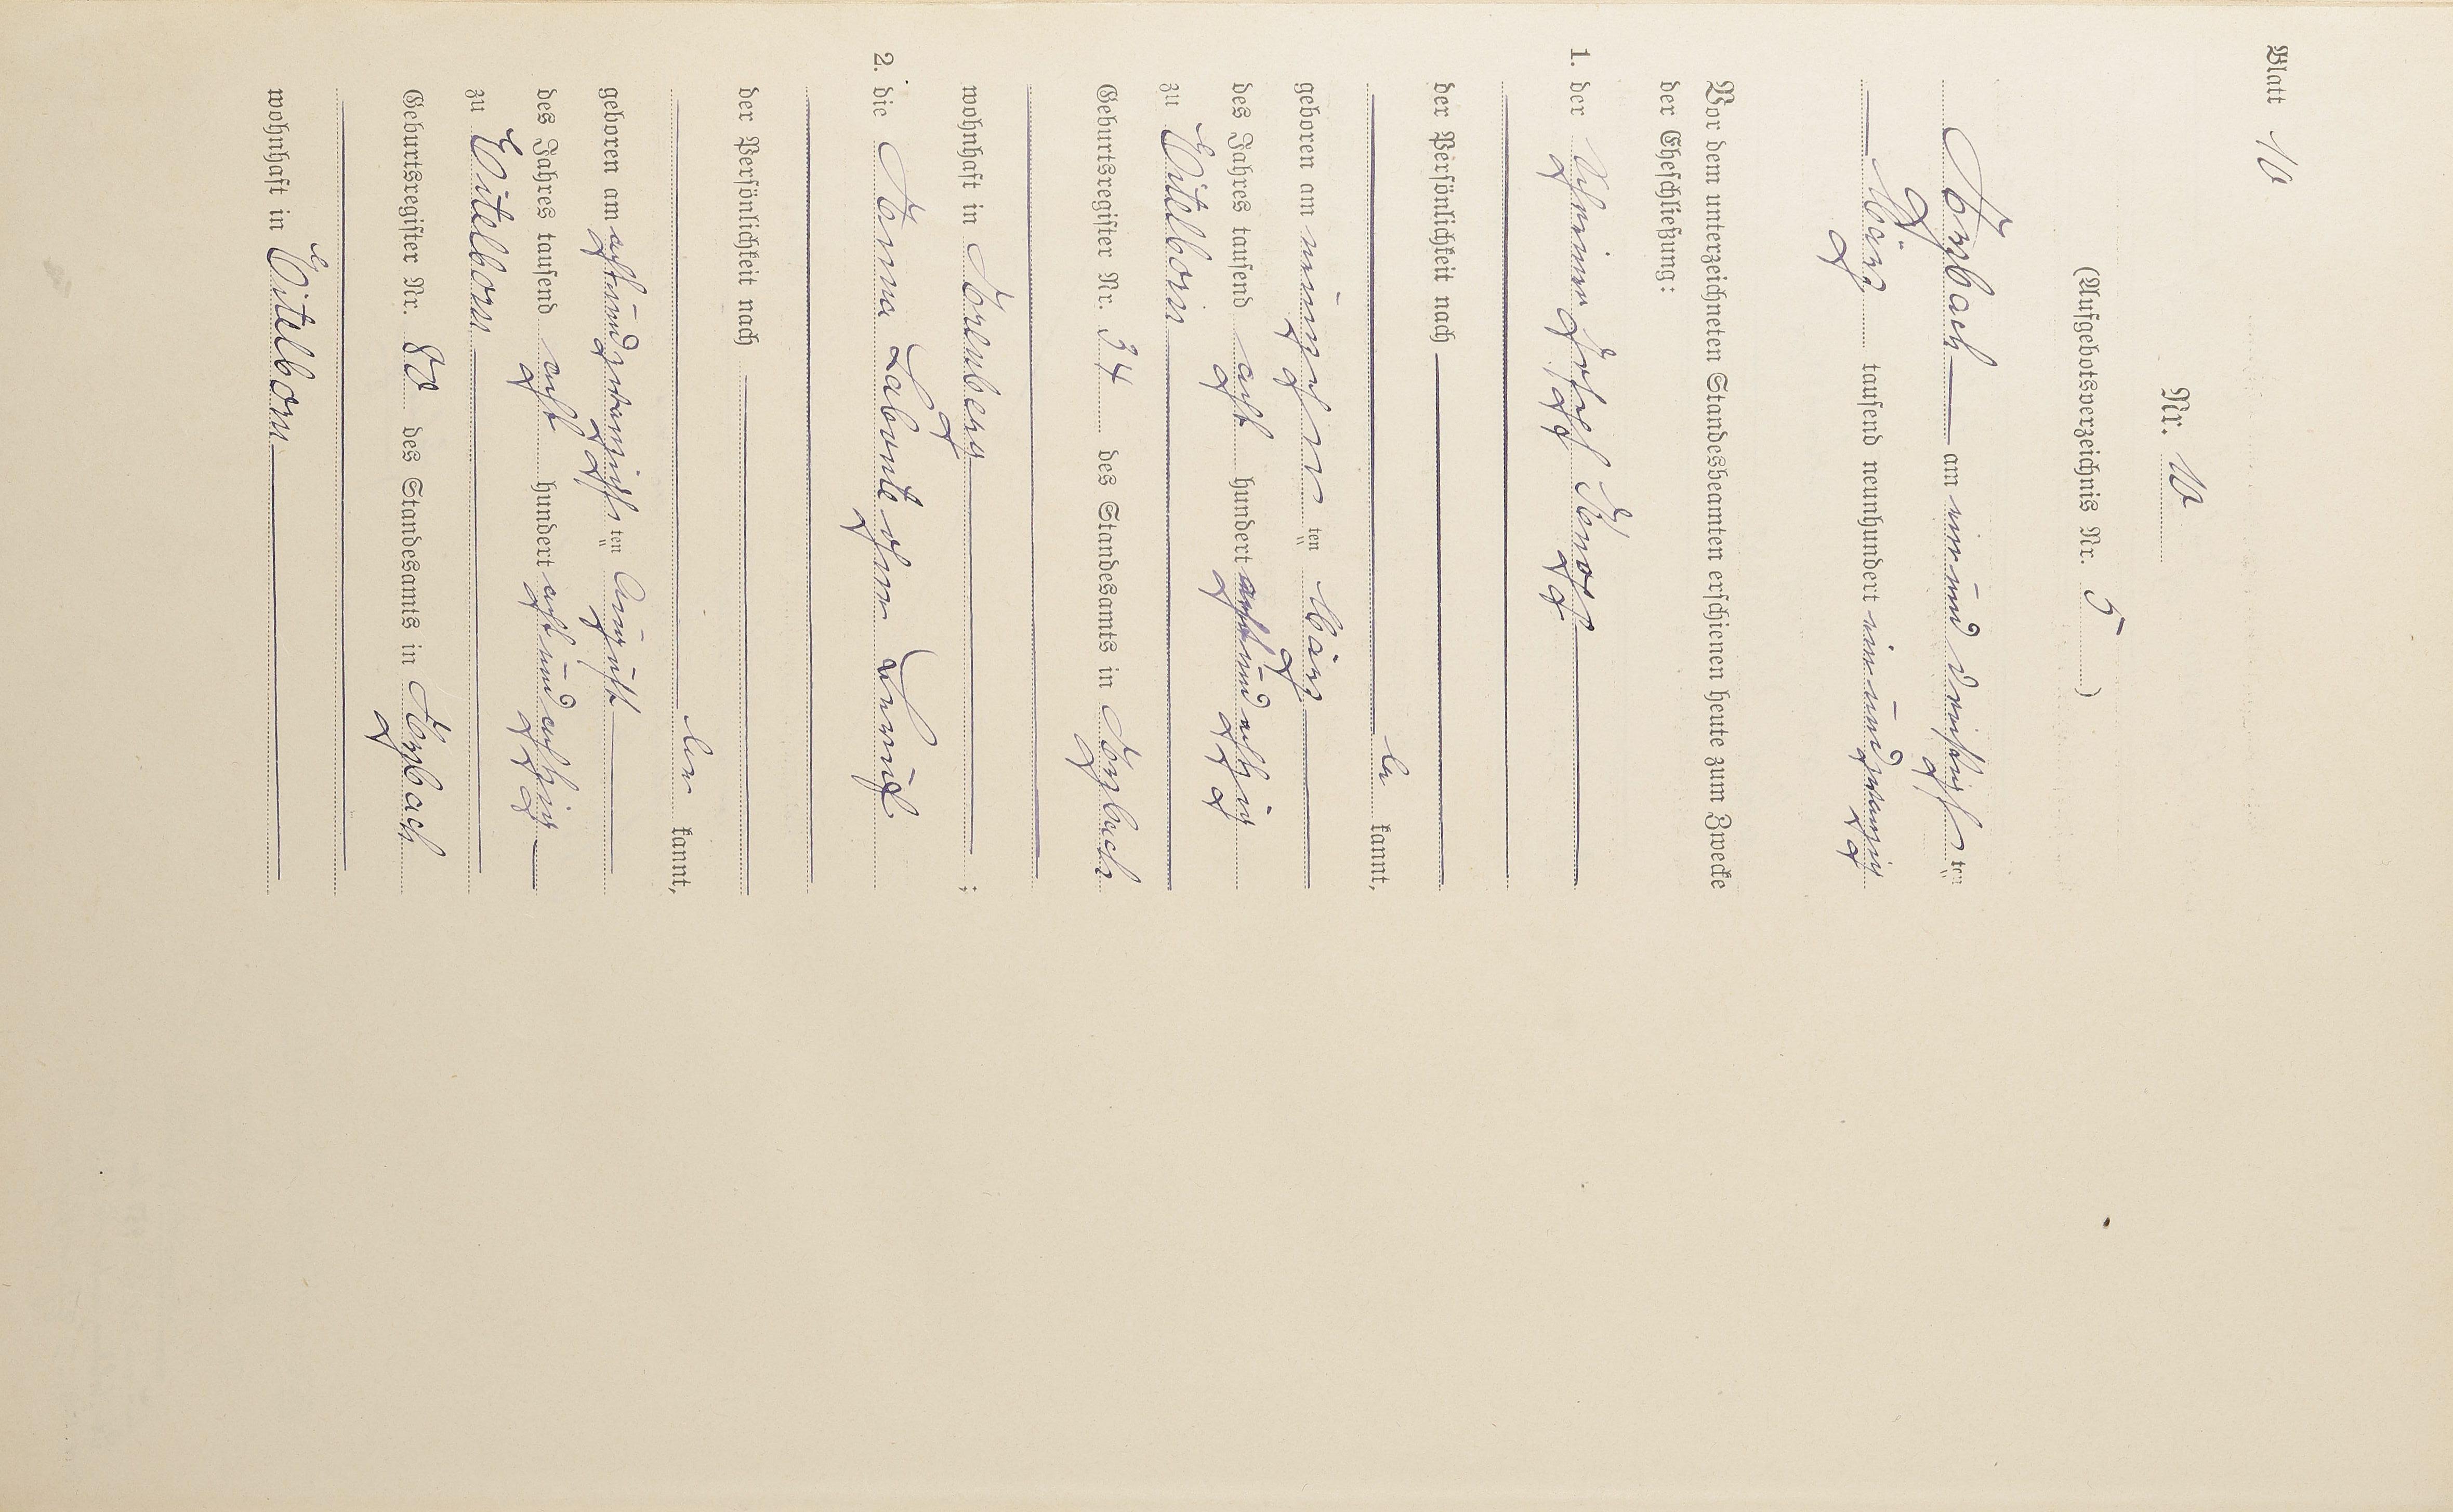 Blatt 10
Nr. 10
(Aufgebotsverzeichnis Nr. 5)
Arzbach am einunddreißigsten
März tausend neunhundert einundzwanzig
Vor dem unterzeichneten Standesbeamten erschienen heute zum Zwecke
der Eheschließung:
1. der Schreiner Josef Knopp
der Persönlichkeit nach
be kannt,
geboren am neunzehnten März
des Jahres tausend acht hundert achtundachtzig
zu Eitelborn
Geburtsregister Nr. 34 des Standesamts in Arzbach
wohnhaft in Arenberg;
2. die Anna
der Persönlichkeit nach
kannt,
geboren am achtundzwanzigsten August
des Jahres tausend acht hundert achtundachtzig
zu Eitelborn
Geburtsregister Nr. 80 des Standesamts in Arzbach
wohnhaft in Eitelborn